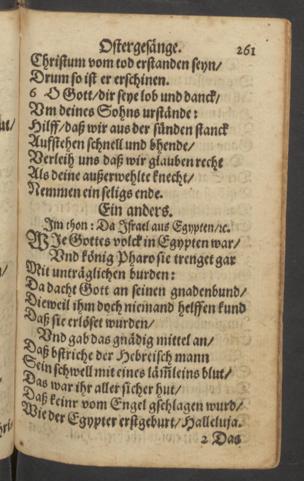 Ostergesänge. 261
Christum vom tod erstanden seyn/
Drum so ist er erschinen.
6 O Gott/dir seye lob und danck/
Um deines Sohns urstände:
Hilff/daß wir aus der sünden stanck
Aufstehen schnell und bhende/
Verleih uns daß wir glauben recht
Als deine außerwehlte knecht/
Nemmen ein seligs ende.
Ein anders.
Im thon: Da Israel aus Egypten/ꝛc.
WIe Gottes volck in Egypten war/
Und könig Pharo sie trenget gar
Mit unträglichen burden:
Da dacht Gott an seinen gnadenbund/
Dieweil ihm doch niemand helffen kund
Daß sie erlöset wurden/
Und gab das gnädig mittel an/
Daß bstriche der Hebreisch mann
Sein schwell mit eines läm̃leins blut/
Das war ihr aller sicher hut/
Daß keinr vom Engel gschlagen wurd/
Wie der Egypter erstgeburt/Halleluja.
2 Das